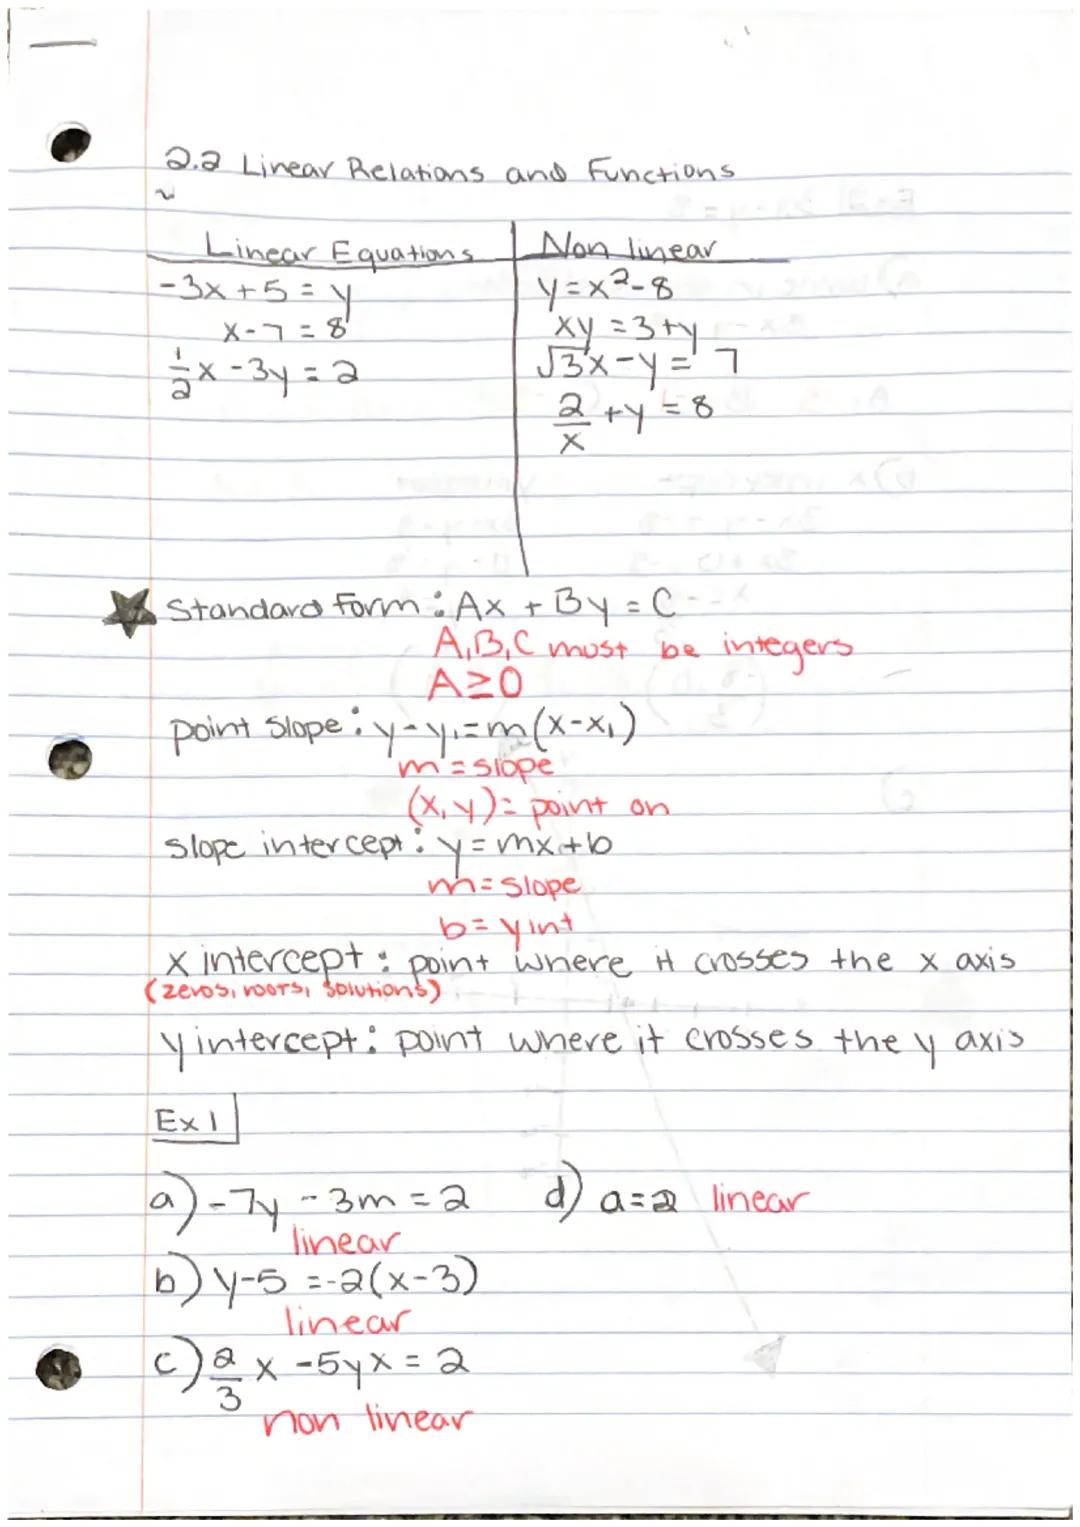 2.2 Linear Relations and Functions
Linear Equations
-3x + 5 = y
x - 7 = 8
1/2 x - 3y = 2
Non linear
y = x² - 8
xy = 3 + y
√3x - y = 7
2/x + y = 8
★ Standard Form: Ax + By = C
A, B, C must be integers
A ≥ 0
point slope: y - y₁ = m(x - x₁)
m = slope
(x, y) = point on
slope intercept: y = mx + b
m = slope
b = y int
x intercept: point where it crosses the x axis
(zeros, roots, solutions)
y intercept: point where it crosses the y axis
Ex 1
a) -7y - 3m = 2
linear
b) y - 5 = -2(x - 3)
linear
c) 2/3 x - 5yx = 2
non linear
d) a = 2 linear